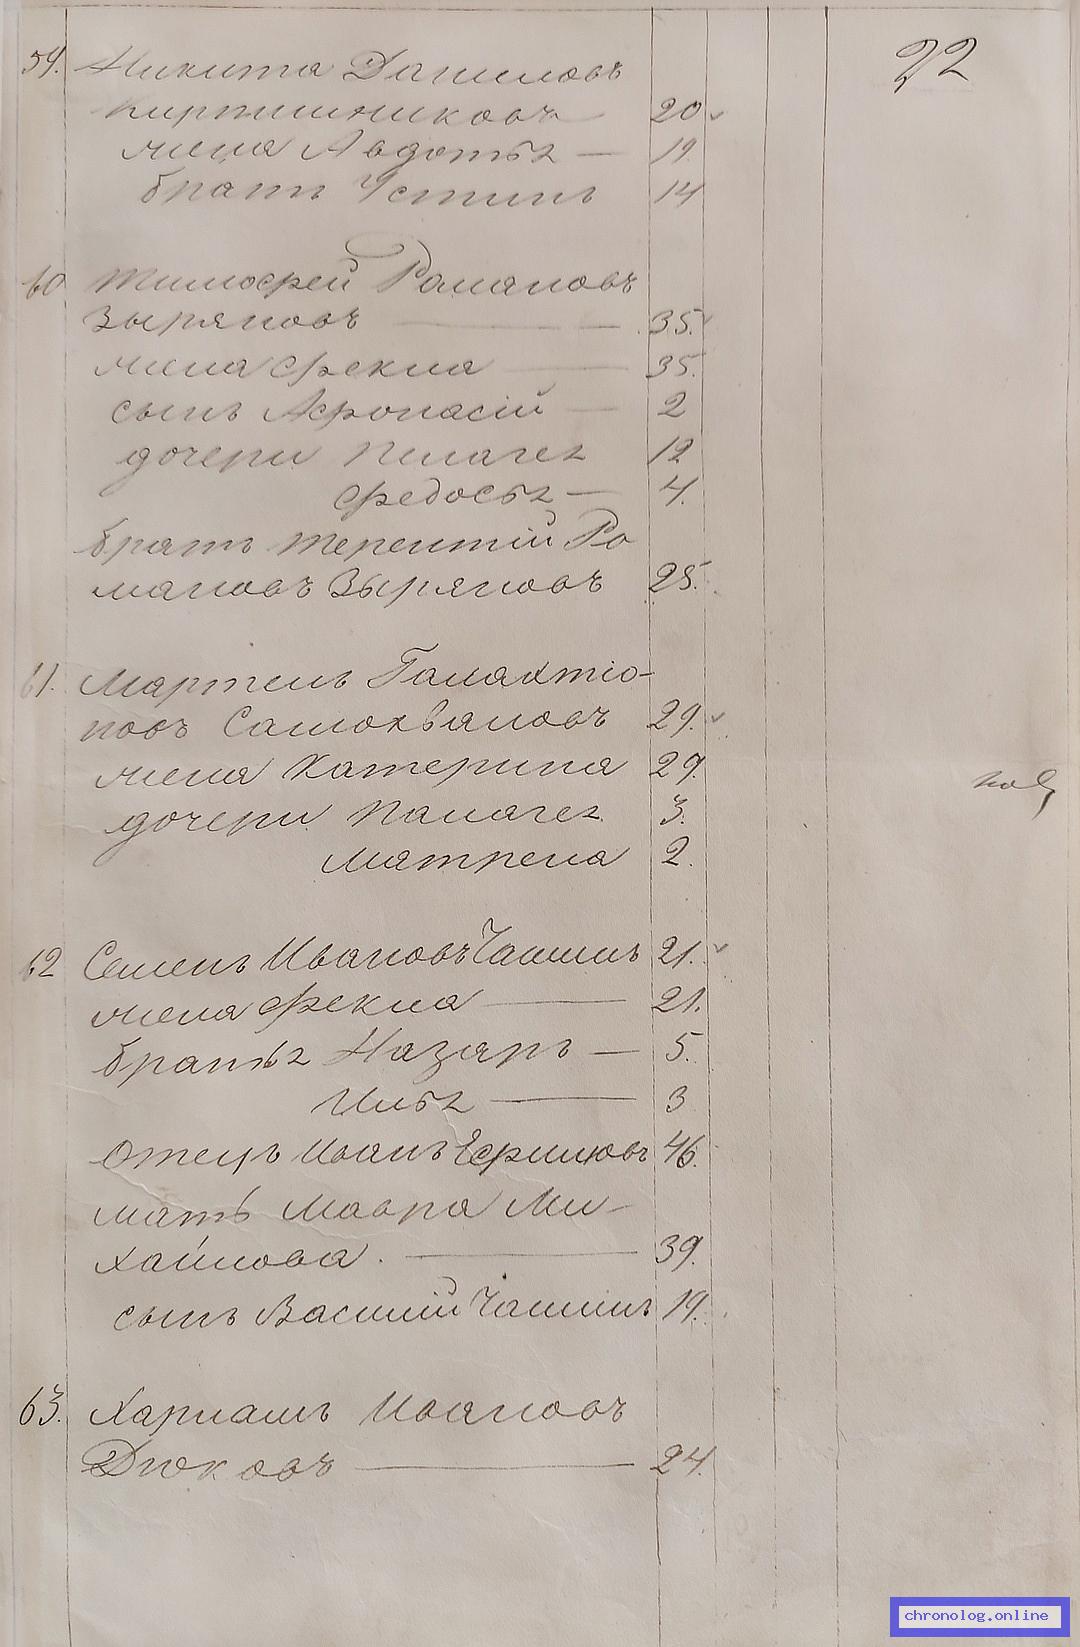 22
59. Никита Даниловъ
Кирпишниковъ 20
жена Авдотья — 19.
братъ Устинъ 14
60 Тимофей Романовъ
Зыряновъ — 35.
жена Фекла — 35.
сынъ Афонасій — 2
дочери Пелагея 12
Федосья — 4.
братъ Терентій Ро
мановъ Зыряновъ 25.
61. Мартенъ Галахтіо-
новъ Самохваловъ 29.
жена Катерина 29.
дочери Палагея 3.
Матрена 2.
62 Семенъ Ивановъ Чашинъ 21.
жена Фекла — 21.
братья Назаръ — 5.
Илья — 3
Отецъ Иванъ Ефимовъ 46.
мать Мавра Ми-
хайлова. — 39.
сынъ Василій Чашинъ 19.
63. Харлампъ Ивановъ
Дюковъ — 24.
chronolog.online